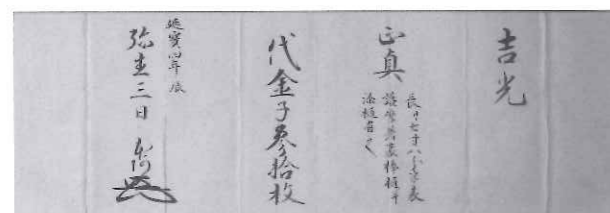 吉光
正真
長サ七寸八分半表
護摩箸裏棒樋
添樋有之
代金子参拾枚
延宝四年辰
弥生三日